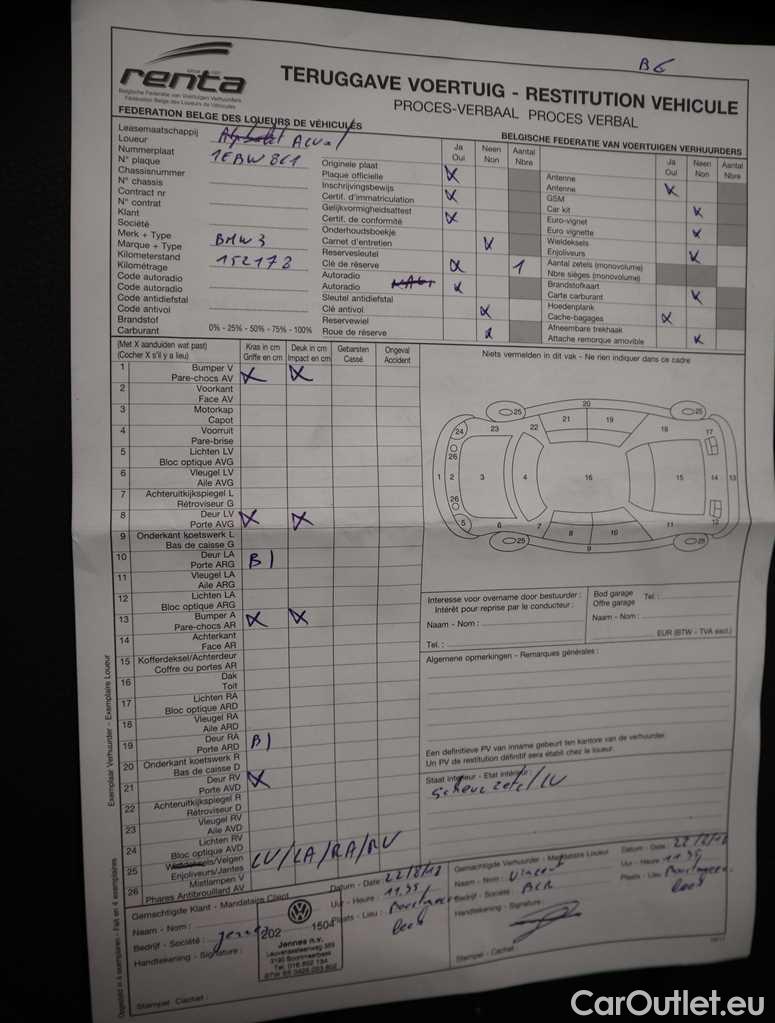 B6
renta
Belgische Federatie van Voertuigen Verhuurders
Fédération Belge des Loueurs de Véhicules
TERUGGAVE VOERTUIG - RESTITUTION VEHICULE
PROCES-VERBAAL PROCES VERBAL
FEDERATION BELGE DES LOUEURS DE VÉHICULES
BELGISCHE FEDERATIE VAN VOERTUIGEN VERHUURDERS
Leasemaatschappij
Loueur
Nummerplaat
N° plaque 1EBW861
Chassisnummer
N° chassis
Contract nr
N° contrat
Klant
Société
Merk + Type
Marque + Type BMW 3
Kilometerstand
Kilométrage 152178
Code autoradio
Code autoradio
Code antidiefstal
Code antivol
Brandstof
Carburant 0% - 25% - 50% - 75% - 100%
Ja Oui
Neen Non
Aantal Nbre
Originele plaat
Plaque officielle X
Inschrijvingsbewijs
Certif. d'immatriculation X
Gelijkvormigheidsattest
Certif. de conformité X
Onderhoudsboekje
Carnet d'entretien X
Reservesleutel
Clé de réserve X 1
Autoradio
Autoradio X
Sleutel antidiefstal
Clé antivol X
Reservewiel
Roue de réserve X
Ja Oui
Neen Non
Aantal Nbre
Antenne
Antenne X
GSM
Car kit X
Euro-vignet
Euro vignette X
Wieldeksels
Enjoliveurs X
Aantal zetels (monovolume)
Nbre sièges (monovolume)
Brandstofkaart
Carte carburant X
Hoedenplank
Cache-bagages X
Afneembare trekhaak
Attache remorque amovible X
(Met X aanduiden wat past)
(Cocher X s'il y a lieu)
Kras in cm
Griffe en cm
Deuk in cm
Impact en cm
Gebarsten
Cassé
Ongeval
Accident
1 Bumper V
Pare-chocs AV X X
2 Voorkant
Face AV
3 Motorkap
Capot
4 Voorruit
Pare-brise
5 Lichten LV
Bloc optique AVG
6 Vleugel LV
Aile AVG
7 Achteruitkijkspiegel L
Rétroviseur G
8 Deur LV
Porte AVG X X
9 Onderkant koetswerk L
Bas de caisse G
10 Deur LA
Porte ARG B)
11 Vleugel LA
Aile ARG
12 Lichten LA
Bloc optique ARG
13 Bumper A
Pare-chocs AR X X
14 Achterkant
Face AR
15 Kofferdeksel/Achterdeur
Coffre ou portes AR
16 Dak
Toit
17 Lichten RA
Bloc optique ARD
18 Vleugel RA
Aile ARD
19 Deur RA
Porte ARD B)
20 Onderkant koetswerk R
Bas de caisse D
21 Deur RV
Porte AVD X
22 Achteruitkijkspiegel R
Rétroviseur D
23 Vleugel RV
Aile AVD
24 Lichten RV
Bloc optique AVD
25 Wieldeksels/Velgen
Enjoliveurs/Jantes LV/LA/RA/RV
26 Mistlampen V
Phares Antibrouillard AV
Exemplaar Verhuurder - Exemplaire Loueur
Opgesteld in 4 exemplaren - Fait en 4 exemplaires
Niets vermelden in dit vak - Ne rien indiquer dans ce cadre
20
25 21 19 25
24 23 22 18 17
26
1 2 3 4 16 15 14 13
26
5 6 7 8 10 11 12
25 9 25
Interesse voor overname door bestuurder :
Intérêt pour reprise par le conducteur :
Naam - Nom :
Tel. :
Bod garage
Offre garage
Tel :
Naam - Nom :
EUR (BTW - TVA excl.)
Algemene opmerkingen - Remarques générales :
Een definitieve PV van inname gebeurt ten kantore van de verhuurder.
Un PV de restitution définitif sera établi chez le loueur.
Staat interieur - Etat intérieur :
Gemachtigde Klant - Mandataire Client
Naam - Nom :
Bedrijf - Société :
Handtekening - Signature :
Stempel Cachet :
Datum - Date : 22/8/18
Uur - Heure : 11.35
Plaats - Lieu :
202 1504
Jennes n.v.
Leuvensesteenweg 389
3190 Boortmeerbeek
Gemachtigde Verhuurder - Mandataire Loueur
Naam - Nom : Vincent
Bedrijf - Société : BCA
Handtekening - Signature :
Stempel - Cachet :
Datum - Date : 22/8/18
Uur - Heure : 11.35
Plaats - Lieu :
CarOutlet.eu